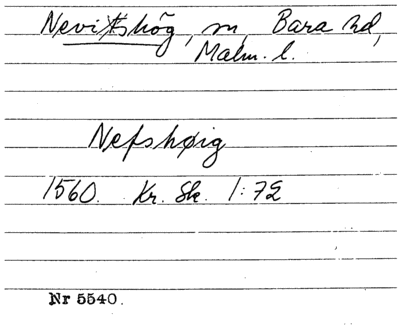 Nevitshög, m, Bara hd,
Malm. l.
Nefshøig
1560. Kr. Sk. 1:72
Nr 5540.